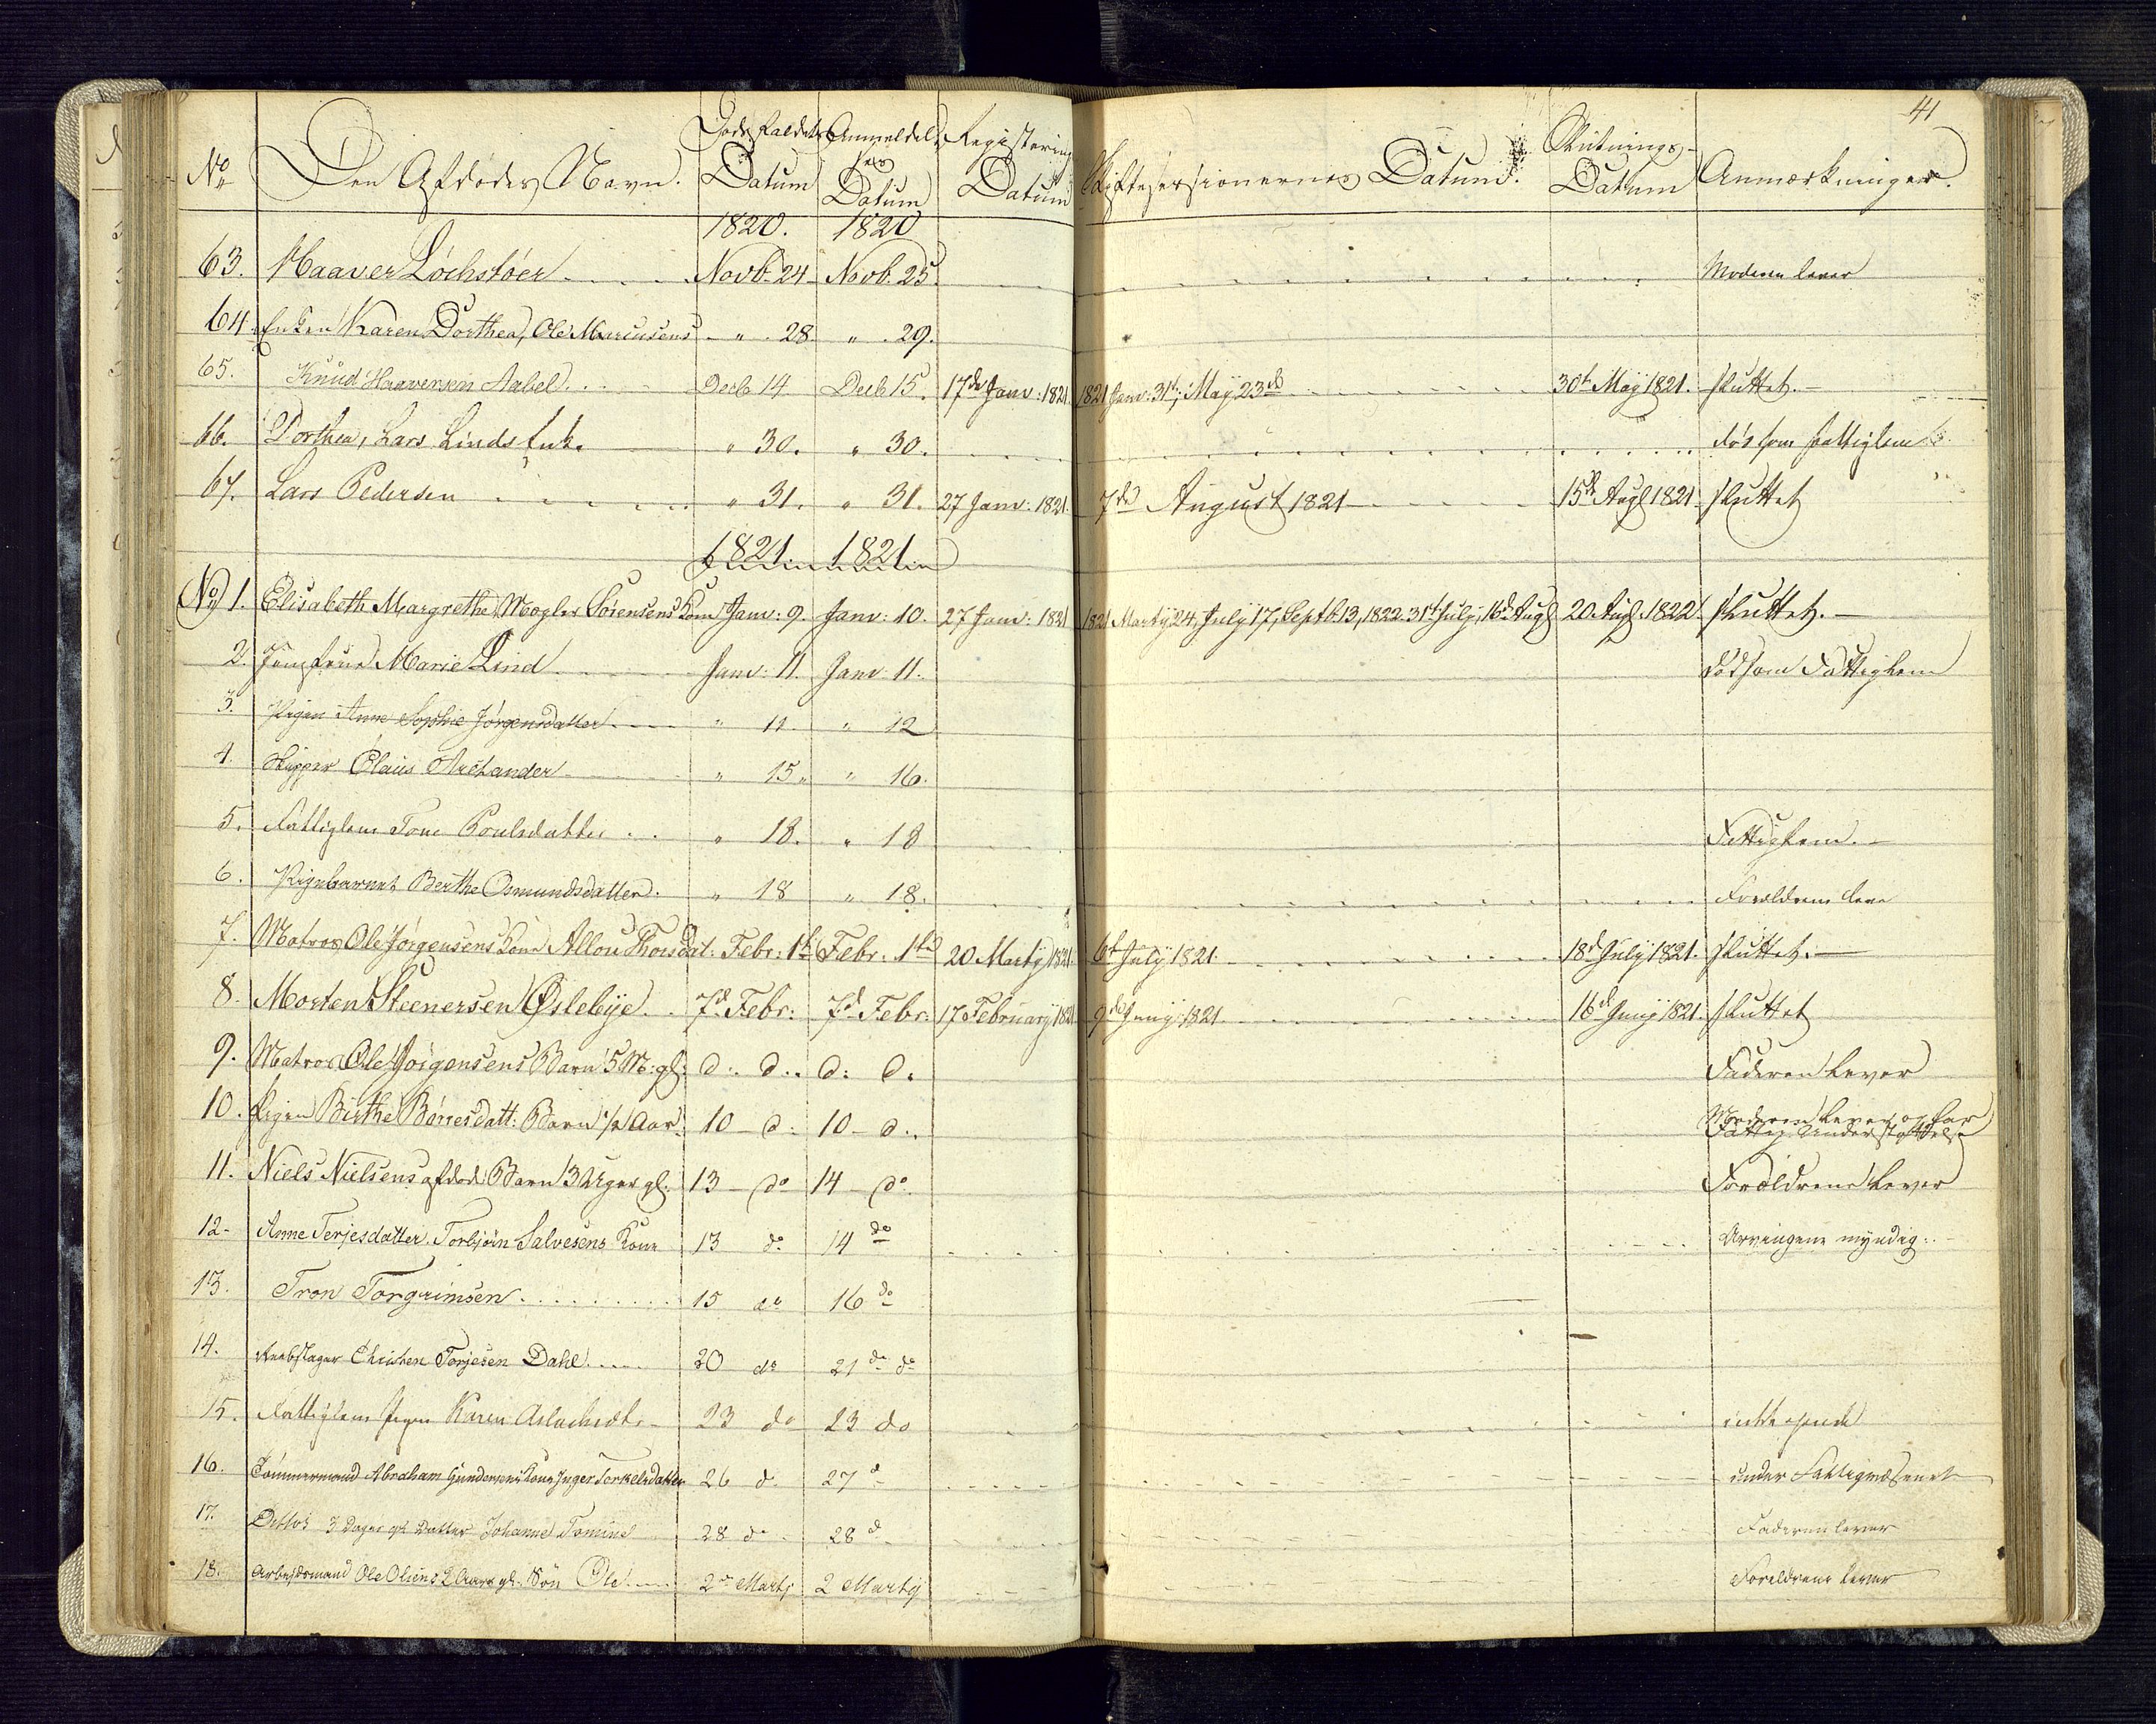 41
No Den Afdødes Navn. Dødsfaldets Datum Anmeldelsens Datum Registerings Datum Skiftesessionernes Datum. Slutnings-Datum Anmærkninger.
1820. 1820
63. Haaver Löchstöer Novb. 24 Novb. 25. Moderen lever
64. Enken Karen Dorthea, Ole Marcusens " 28. " 29.
65. Knud Haaversen Aabel Decb 14 Decb 15. 17de Janv: 1821. 1821 Janv: 31t; May 23de 30t May 1821. sluttet.
66. Dorthea, Lars Linds Enke " 30. " 30. som Fattiglem
67. Lars Pedersen " 31. " 31. 27 Janv: 1821. 7de August 1821 15de Augl 1821 sluttet
1821. 1821.
No 1. Elisabeth Margrethe Mogler Sörensens Kone Janv: 9. Janv: 10. 27 Janv: 1821 1821 Martÿ 24, Julÿ 17, Septb. 13, 1822. 31t Julÿ, 16d Augl 20 Augl. 1822. sluttet.
2. Jomfrue Marie Lind Janv: 11. Janv: 11. död som Fattiglem
3. Pigen Anne Sophie Jörgensdatter " 11. " 12
4. Skipper Claus Archander " 15 " 16.
5. Fattiglem Tone Poulsdatter " 18. " 18 Fattiglem.
6. Pigebarnet Berthe Osmundsdatter. " 18 " 18. Forældrene leve
7. Matros Ole Jörgensens Kone Allou Thorsdat: Febr: 1t Febr. 1te 20 Martÿ 1821. 6t Julÿ 1821. 18d Julÿ 1821. sluttet.
8. Morten Steenersen Øslebye 7d Febr: 7d Febr: 17 Februarÿ 1821 9de Junÿ 1821. 16d Junÿ 1821. sluttet
9. Matros Ole Jörgensens Barn 5 M: gl: d: d: d: d: Faderen Lever
10. Pigen Birthe Börresdatt: Barn 1/2 Aar. 10 d: 10 d: Moderen Lever og har
Fattig Understøttelse
11. Niels Nielsens afdøde Barn 3 Uger gl. 13 do 14 do Forældrene Lever
12. Anne Terjesdatter Torbjörn Salvesens Kone 13 do 14 do Arvingene myndig:
13. Tron Torgrimsen 15 do 16 do
14. Reebslager Christen Terjesen Dahl 20 do 21 do do
15. Fattiglem Pigen Karen Aslachsdt. 23 do 23 do intet ejende
16. Tömmermand Abraham Gundersens Kone Inger Terkelsdatter 26 d. 27 d under Fattigvæsenet
17. Dittos 3 Dager gl. Datter Johanne Tomine 28 do 28 d Faderen lever
18. Arbejdsmand Ole Olsens 2 Aars gl. Sön Ole 2de Martj 2 Martij Forældrene lever